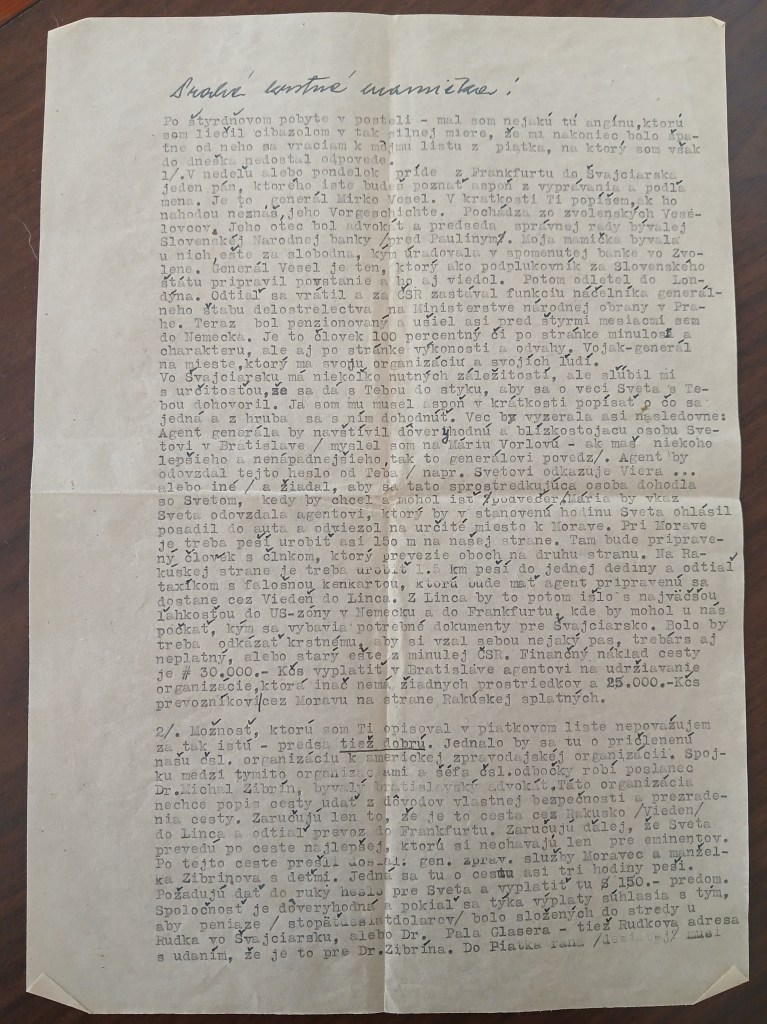 Drahá krstná mamička!
Po štyrdňovom pobyte v posteli - mal som nejakú tú angínu,ktorú
som liečil cibazolom v tak silnej miere, že mi nakoniec bolo špa-
tne od neho sa vraciam k môjmu listu z piatka, na ktorý som však
do dneška nedostal odpovede.
1/.V nedeľu alebo pondelok príde z Frankfurtu do Švajciarska
jeden pán, ktorého iste budeš poznať aspoň z vyprávania a podľa
mena. Je to generál Mirko Vesel. V krátkosti Ti popíšem,ak ho
nahodou neznáš,jeho Vorgeschichte. Pochádza zo zvolenských Vese-
lovcov. Jeho otec bol advokát a predseda správnej rady bývalej
Slovenskéj Narodnej banky /pred Paulínym/. Moja mamička bývala
u nich,ešte za slobodna, kým úradovala v spomenutej banke vo Zvo-
lene. Generál Vesel je ten, ktorý ako podplukovník za Slovenského
štátu pripravil povstanie a ho aj viedol. Potom odletel do Lon-
dýna. Odtiaľ sa vrátil a za ČSR zastával funkciu náčelníka generál-
neho štabu delostrelectva na Ministerstve národnej obrany v Pra-
he. Teraz bol penzionovaný a ušiel asi pred štyrmi mesiacmi sem
do Nemecka. Je to človek 100 percentný či po stránke minulosti a
charakteru, ale aj po stránke výkonosti a odvahy. Vojak-generál
na mieste,ktorý má svoju organizáciu a svojích ľudí.
Vo Švajciarsku má niekoľko nutných záležitostí, ale sľúbil mi
s určitosťou,že sa dá s Tebou do styku, aby sa o veci Sveta s Te-
bou dohovoril. Ja som mu musel aspoň v krátkosti popísať o čo sa
jedná a z hruba sa s ním dohodnúť. Vec by vyzerala asi následovne:
Agent generála by navštívil dôveryhodnú a blízkostojacu osobu Sve-
tovi v Bratislave / myslel som na Máriu Vorlovú - ak máš niekoho
lepšieho a nenápadnejšieho,tak to generálovi povedz/. Agent by
odovzdal tejto heslo od Teba / napr. Svetovi odkazuje Viera ...
alebo iné / a žiadal, aby sa táto sprostredkujúca osoba dohodla
so Svetom, kedy by chcel a mohol ísť /podvečer/.Mária by vkaz
Sveta odovzdala agentovi, ktorý by v stanovenú hodinu Sveta ohlásil
posadil do auta a odviezol na určité miesto k Morave. Pri Morave
je treba peší urobiť asi 150 m na našej strane. Tam bude priprave-
ný človek s člnkom, ktorý prevezie oboch na druhu stranu. Na Ra-
kúskej strane je treba urobiť 1.5 km peší do jednej dediny a odtiaľ
taxíkom s falošnou kenkartou, ktorú bude mať agent pripravenú sa
dostane cez Viedeň do Linca. Z Linca by to potom išlo s najväčšou
ľahkosťou do US-zóny v Nemecku a do Frankfurtu, kde by mohol u nás
počkať, kým sa vybavia potrebné dokumenty pre Švajciarsko. Bolo by
treba odkázať krstnému, aby si vzal sebou nejaký pas, trebárs aj
neplatný, alebo starý ešte z minulej ČSR. Finančný náklad cesty
je # 30.000.- Kčs vyplatiť v Bratislave agentovi na udržiavanie
organizácie,ktorá ináč nemá žiadnych prostriedkov a 25.000.-Kčs
prevozníkovi/cez Moravu na strane Rakúskej splatných.
2/. Možnosť, ktorú som Ti opisoval v piatkovom liste nepovažujem
za tak istú - predsa tiež dobrú. Jednalo by sa tu o pričlenenú
našu čsl. organizáciu k americkej zpravodajskéj organizácii. Spoj-
ku medzi tymito organizaciami a šéfa čsl.odbočky robí poslanec
Dr.Michal Zibrín, bývalý bratislavský advokát.Táto organizácia
nechce popis cesty udať z dôvodov vlastnej bezpečnosti a prezrade-
nia cesty. Zaručujú len to, že je to cesta cez Rakúsko /Viedeň/
do Linca a odtiaľ prevoz do Frankfurtu. Zaručujú ďalej, že Sveta
prevedú po ceste najlepšej, ktorú si nechávajú len pre eminentov.
Po tejto ceste prešli dosiaľ: gen. zprav. služby Moravec a manžel-
ka Zibrinova s deťmi. Jedná sa tu o cestu asi tri hodiny peší.
Požadujú dať do ruky heslo pre Sveta a vyplatiť tu $ 150.- predom.
Spoločnosť je dôveryhodná a pokiaľ sa týka výplaty súhlasia s tým,
aby peniaze / stopäťdesiatdolarov/ bolo složených do stredy u
Rudka vo Švajciarsku, alebo Dr. Pala Glasera - tiež Rudkova adresa
s udaním, že je to pre Dr.Zibrína. Do Piatka rána